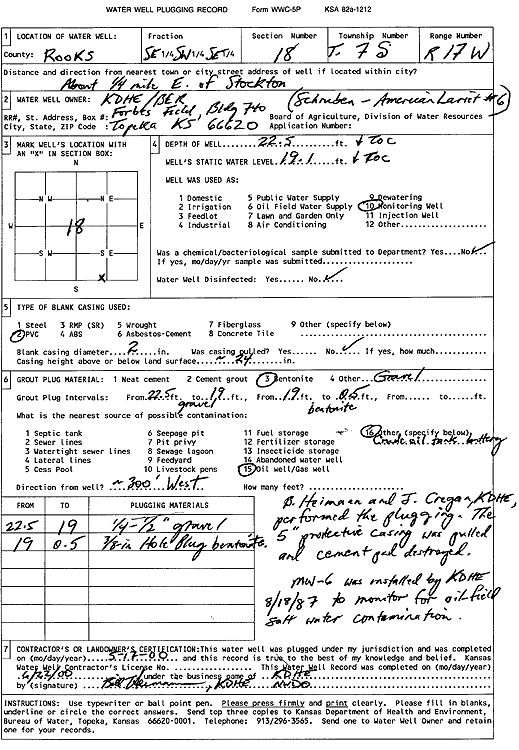 WATER WELL PLUGGING RECORD Form WWC-5P KSA 82a-1212
1 LOCATION OF WATER WELL: Fraction Section Number Township Number Range Number
County: Rooks SE 1/4 SW 1/4 SE 1/4 18 T. 7 S R 17 W
Distance and direction from nearest town or city street address of well if located within city?
About 1/4 mile E. of Stockton
2 WATER WELL OWNER: KDHE/BER (Schruben - American Lariet #6)
RR#, St. Address, Box #: Forbes Field, Bldg 740 Board of Agriculture, Division of Water Resources
City, State, ZIP Code : Topeka KS 66620 Application Number:
3 MARK WELL'S LOCATION WITH AN "X" IN SECTION BOX:
N
N W N E
W 18 E
S W S E
X
S
4 DEPTH OF WELL......22.5......ft. ↓ TOC
WELL'S STATIC WATER LEVEL..19.1....ft. ↓ TOC
WELL WAS USED AS:
1 Domestic 5 Public Water Supply 9 Dewatering
2 Irrigation 6 Oil Field Water Supply 10 Monitoring Well
3 Feedlot 7 Lawn and Garden Only 11 Injection Well
4 Industrial 8 Air Conditioning 12 Other...........
Was a chemical/bacteriological sample submitted to Department? Yes....No ✓
If yes, mo/day/yr sample was submitted...................
Water Well Disinfected: Yes..... No ✓
5 TYPE OF BLANK CASING USED:
1 Steel 3 RMP (SR) 5 Wrought 7 Fiberglass 9 Other (specify below)
2 PVC 4 ABS 6 Asbestos-Cement 8 Concrete Tile
Blank casing diameter..2....in. Was casing pulled? Yes..... No ✓ If yes, how much............
Casing height above or below land surface....~24.......in.
6 GROUT PLUG MATERIAL: 1 Neat cement 2 Cement grout 3 Bentonite 4 Other...Gravel
Grout Plug Intervals: From 22.5 ft. to 19 ft., From 19 to 0.5 ft., From...... to......ft.
gravel bentonite
What is the nearest source of possible contamination:
1 Septic tank 6 Seepage pit 11 Fuel storage 16 Other (specify below)
2 Sewer lines 7 Pit privy 12 Fertilizer storage Crude oil tank battery
3 Watertight sewer lines 8 Sewage lagoon 13 Insecticide storage
4 Lateral lines 9 Feedyard 14 Abandoned water well
5 Cess Pool 10 Livestock pens 15 Oil well/Gas well
Direction from well? ~ 300' West How many feet?
FROM TO PLUGGING MATERIALS
22.5 19 1/4-1/2" gravel
19 0.5 3/8-in Hole Plug bentonite.
B. Heimann and J. Cregan, KDHE,
performed the plugging. The
5" protective casing was pulled
and cement pad destroyed.
MW-6 was installed by KDHE
8/18/87 to monitor for oilfield
salt water contamination.
7 CONTRACTOR'S OR LANDOWNER'S CERTIFICATION:This water well was plugged under my jurisdiction and was completed
on (mo/day/year)....5-17-00.... and this record is true to the best of my knowledge and belief. Kansas
Water Well Contractor's License No. .............. This Water Well Record was completed on (mo/day/year)
6/23/00 under the business name of KDHE
by (signature) Bill Heimann, KDHE NWDO
INSTRUCTIONS: Use typewriter or ball point pen. Please press firmly and print clearly. Please fill in blanks,
underline or circle the correct answers. Send top three copies to Kansas Department of Health and Environment,
Bureau of Water, Topeka, Kansas 66620-0001. Telephone: 913/296-3565. Send one to Water Well Owner and retain
one for your records.